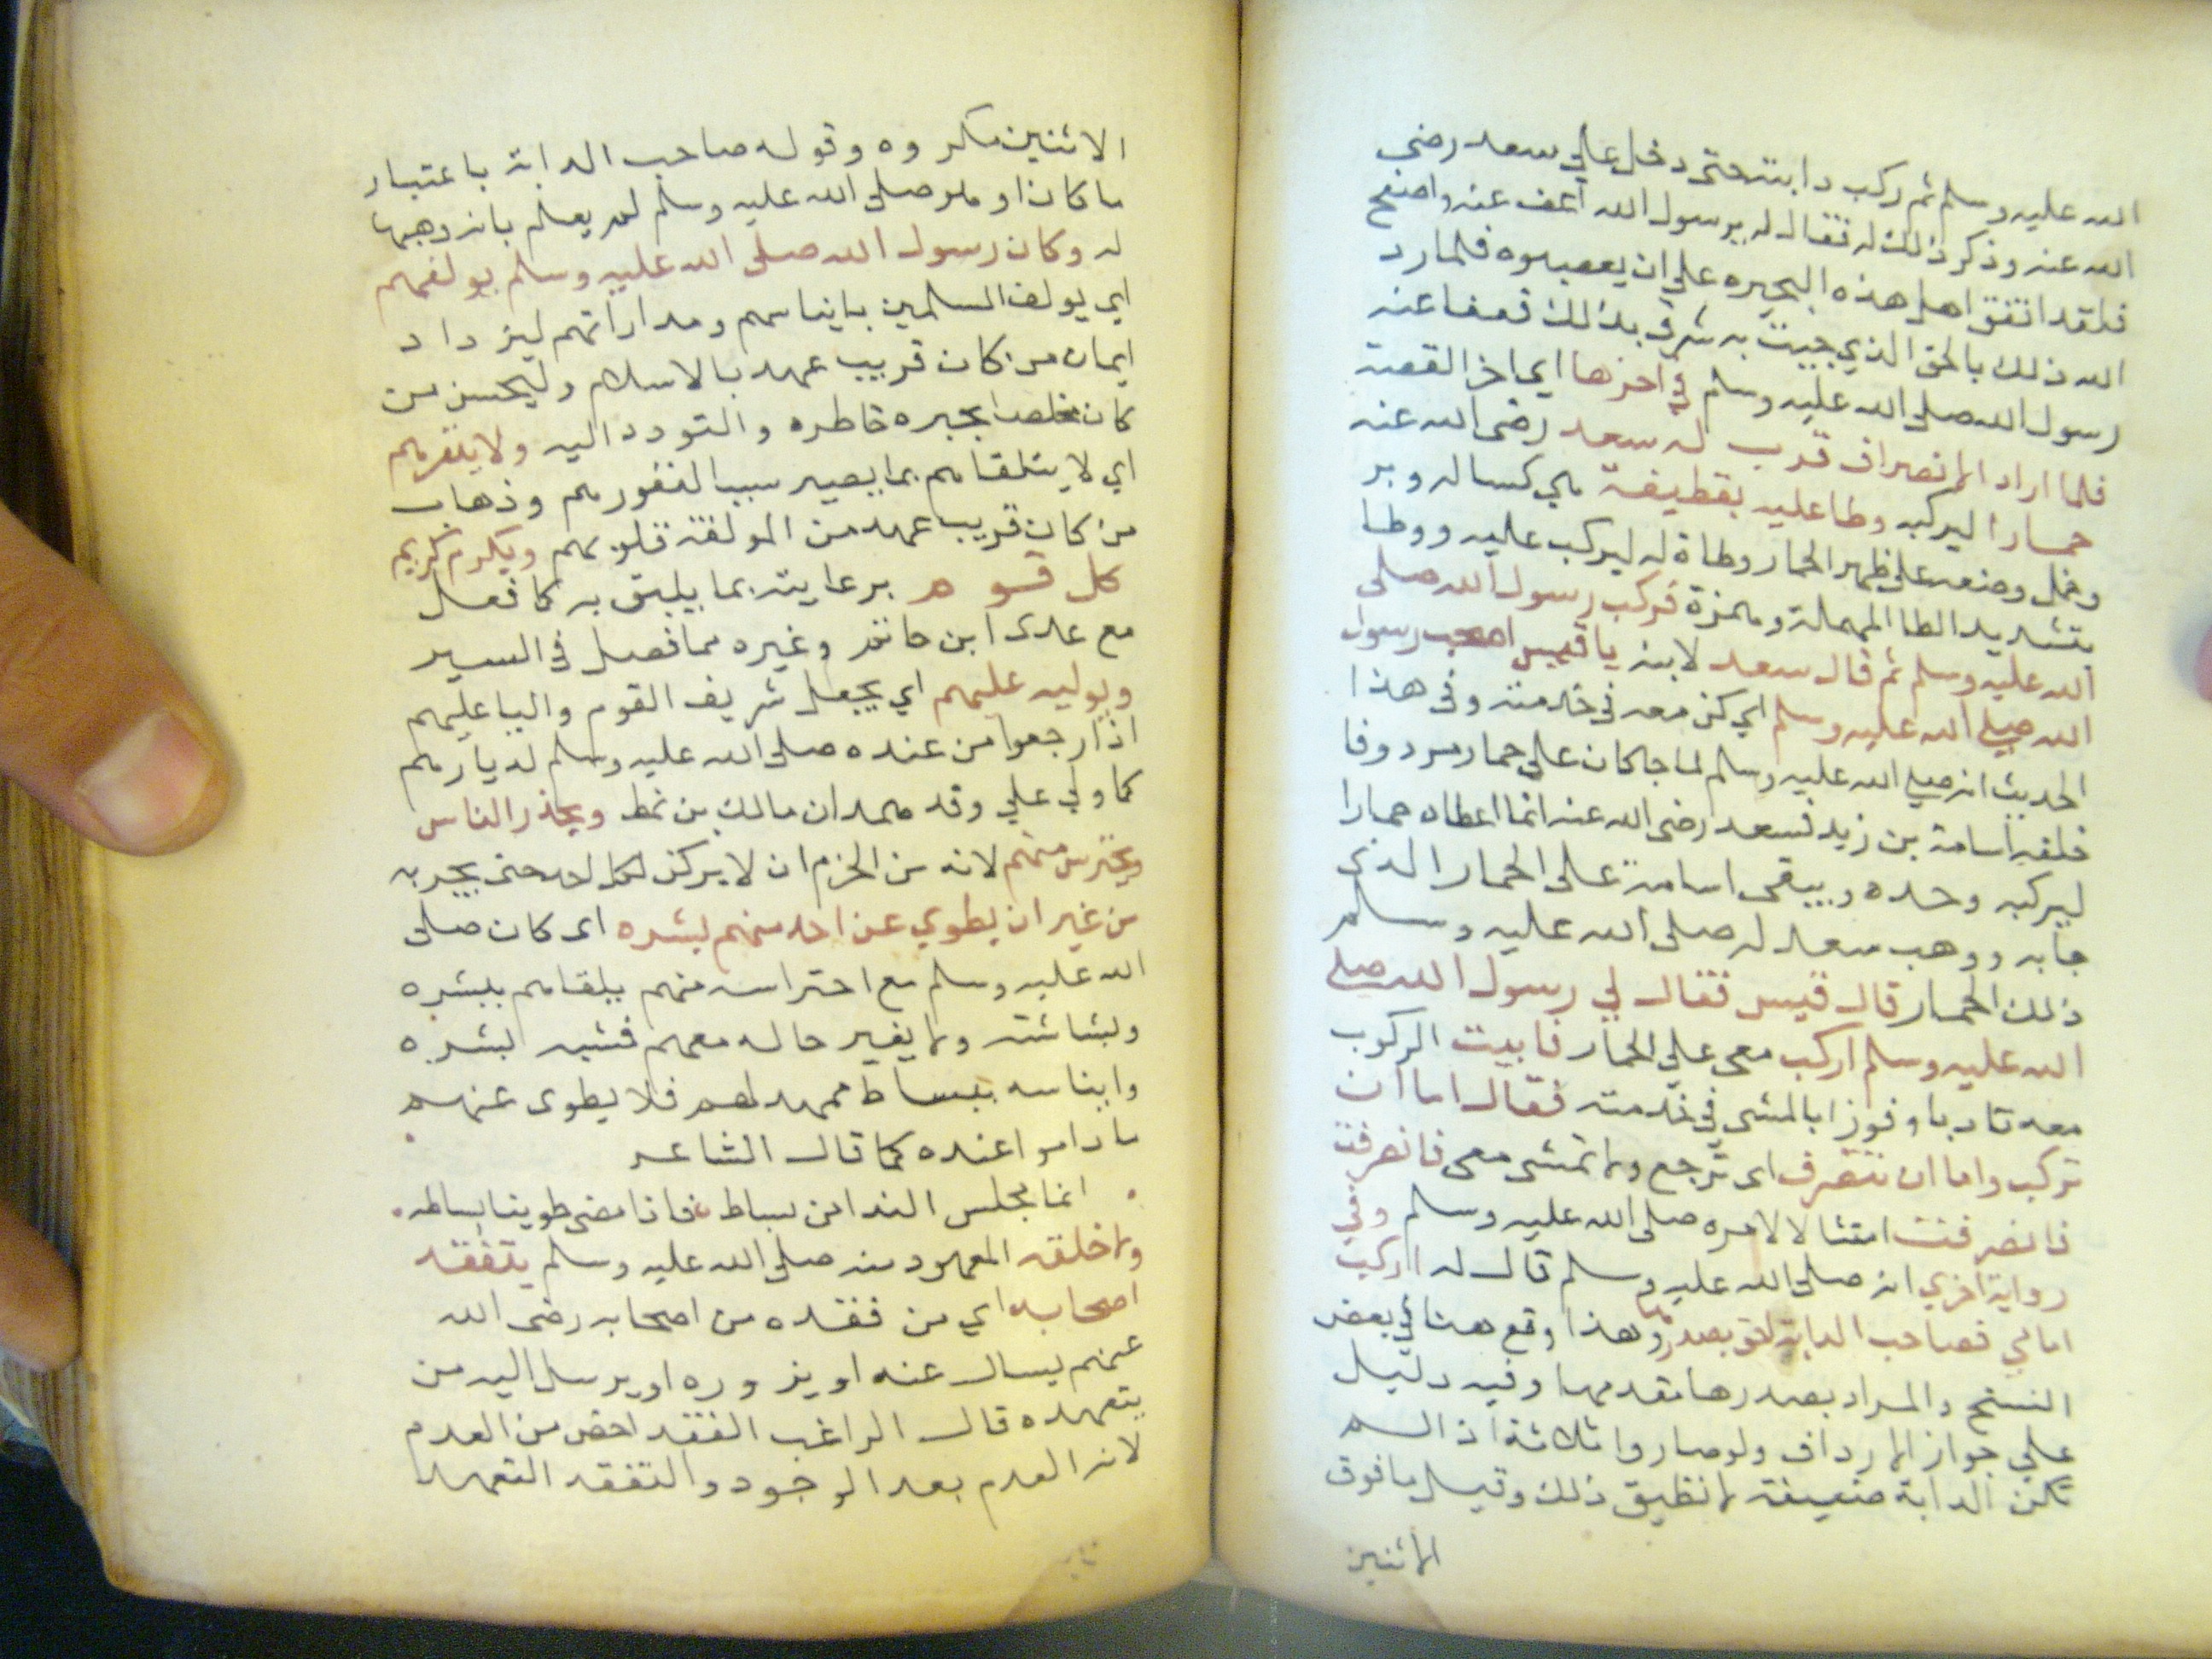 الله عليه وسلم ثم ركب دابته حتى دخل علي سعد رضى
الله عنه وذكر ذلك له فقال له يرسول الله أعف عنه واصفح
فلقد اتفق اهل هذه البحيره علي ان يعصبوه فلما رد
الله ذلك بالحق الذي جيت به شرق بذلك فعفا عنه
رسول الله صلى الله عليه وسلم في اخرها اي اخر القصة
فلما اراد الانصراف قرب له سعد رضى الله عنه
حمارا ليركبه وطا عليه بقطيفة هي كسا له وبر
وخمل وضعه علي ظهر الحمار وطاة له ليركب عليه ووطا
بتشديد الطا المهملة وهمزة فركب رسول الله صلى
الله عليه وسلم ثم قال سعد لابنه يا قيس اصحب رسول
الله صلي الله عليه وسلم اي كن معه في خدمته وفى هذا
الحديث انه صلي الله عليه وسلم لما جا كان علي حمار مردوفا
خلفه اسامة بن زيد فسعد رضى الله عنه انما اعطاه حمارا
ليركبه وحده ويبقى اسامة على الحمار الذى
جا به ووهب سعد له صلى الله عليه وسلم
ذلك الحمار قال قيس فقال لي رسول الله صلي
الله عليه وسلم اركب معى علي الحمار فابيت الركوب
معه تادبا وفوزا بالمشى في خدمته فقال اما ان
تركب واما ان تنصرف اى ترجع ولا تمشى معى فانصرفت
فانصرفت امتثالا لامره صلى الله عليه وسلم وفي
رواية اخري انه صلى الله عليه وسلم قال له اركب
امامي فصاحب الدابة احق بصدرها وهذا وقع هنا في بعض
النسخ والمراد بصدرها مقدمها وفيه دليل
علي جواز الارداف ولو صاروا ثلاثة اذ السم
تكن الدابة ضعيفة لا تطيق ذلك وقيل ما فوق
الاثنين
الاثنين مكروه وقوله صاحب الدابة باعتبار
ما كان او هو صلى الله عليه وسلم لم يعلم بانه وهبها
له وكان رسول الله صلى الله عليه وسلم يولفهم
اي يولف المسلمين بايناسهم ومداراتهم ليزداد
ايمان من كان قريب عهد بالاسلام وليحسن من
كان مخلصا بجبره خاطره والتودد اليه ولا ينفرهم
اي لا يتلقاهم بما يصير سببا لنفورهم وذهاب
من كان قريب عهد من المولفة قلوبهم ويكرم كريم
كل قوم برعايته بما يليق به كما فعل
مع عدى ابن حاتم وغيره مما فصل فى السير
ويوليه عليهم اي يجعل شريف القوم واليا عليهم
اذا رجعوا من عنده صلى الله عليه وسلم لديارهم
كما ولي علي وفد همدان مالك بن نمط ويحذر الناس
ويحترس منهم لانه من الحزم ان لا يركن لكل احد حتى يجربه
من غير ان يطوي عن احد منهم بشره اى كان صلى
الله عليه وسلم مع احتراسه منهم يلقاهم ببشره
وبشاشته ولا يغير حاله معهم فشبه بشره
وايناسه ببساط ممهد لهم فلا يطوى عنهم
ما داموا عنده كما قال الشاعر
انما مجلس الندامى بساط فاذا مضى طوينا بساطه
ولا خلقه المعهود منه صلى الله عليه وسلم يتفقد
اصحابه اي من فقده من اصحابه رضى الله
عنهم يسال عنه او يزوره او يرسل اليه من
يتعهده قال الراغب الفقد اخص من العدم
لانه العدم بعد الوجود والتفقد التعهد